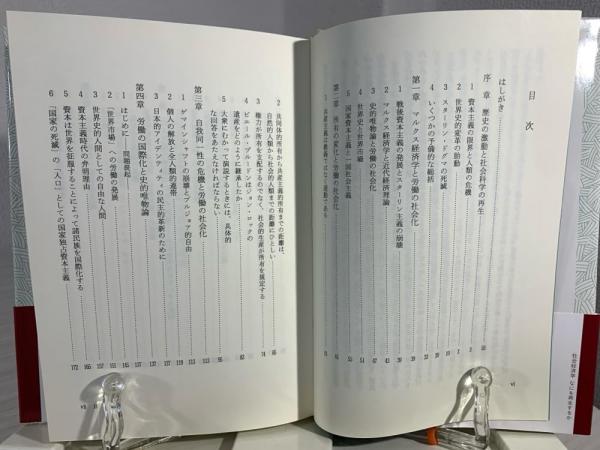 目次
はしがき
序章 歴史の激動と社会科学の再生
1 資本主義の限界と人類の危機
2 世界史的変革の胎動
3 スターリン・ドグマの死滅
4 いくつかの予備的な総括
第一章 マルクス経済学と労働の社会化
1 戦後資本主義の発展とスターリン主義の崩壊
2 マルクス経済学と近代経済理論
3 史的唯物論と労働の社会化
4 世界史と世界市場
5 国家資本主義と一国社会主義
第二章 所有の社会化と労働の社会化
1 共産主義は教義ではなく運動である
vi
社会経済学 なにを再生するか
2 具体的所有から共産主義的所有までの距離は、
自然的人類から社会的人類までの距離にひとしい
3 権力が所有を支配するのでなく、社会的生産が所有を規定する
4 ピエール・プルードンはジョン・ロックの
遺産をどのように継承したか
5 大衆にむかって演説するときには、具体的
な回答をあたえなければならない
第三章 自我同一性の危機と労働の社会化
1 ゲマインシャフトの崩壊とブルジョア的自由
2 個人の解放と全人類的連帯
3 日本的アイデンティティの民主的革新のために
第四章 労働の国際化と史的唯物論
1 はじめに――問題提起
2 「世界市場」への労働の発展
3 世界史的人間としての自由な人間
4 資本主義時代の弁明理由
5 資本は世界を征服することによって諸民族を国際化する
6 「国家の死滅」の「入口」としての国家独占資本主義
172
vii